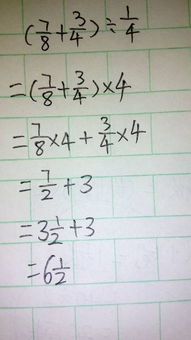 (7/8+3/4)÷1/4
=(7/8+3/4)×4
=7/8×4+3/4×4
=7/2+3
=3 1/2+3
=6 1/2